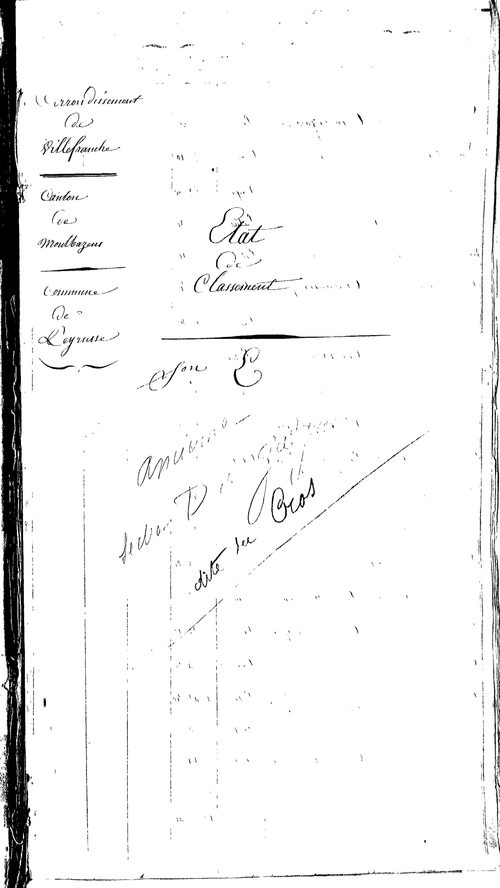 Arrondissement
de
Villefranche
Canton
de
Montbazens
Commune
de
Peyrusse
Etat
de
Classement
Son E
ancienne
Section D
dite du Cros